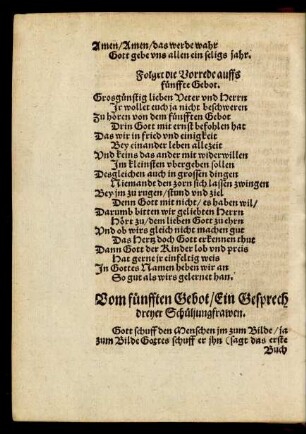 Amen/Amen/das werde wahr
Gott gebe vns allen ein seligs jahr.
Folget die Vorrede auffs
fünffte Gebot.
Grosgünstig lieben Veter vnd Herrn
Jr wollet euch ja nicht beschweren
Zu hören von dem fünfften Gebot
Drin Gott mit ernst befohlen hat
Das wir in fried vnd einigkeit
Bey einander leben allezeit
Vnd keins das ander mit widerwillen
Jm kleinsten vbergeben sollen
Desgleichen auch in grossen dingen
Niemandt den zorn sich lassen zwingen
Bey jm zu rugen/stund vnd ziel
Denn Gott mit nicht/es haben wil/
Darumb bitten wir geliebten Herrn
Hört zu/dem lieben Gott zu ehrn
Vnd ob wirs gleich nicht machen gut
Das Hertz doch Gott erkennen thut
Dann Gott der Kinder lob vnd preis
Hat gerne jr einfeltig weis
Jn Gottes Namen heben wir an
So gut als wirs gelernet han.
Vom fünfften Gebot/Ein Gesprech
dreyer Schüljungfrawen.
Gott schuff den Menschen jm zum Bilde/ja
zum Bilde Gottes schuff er jhn (sagt das erste
Buch